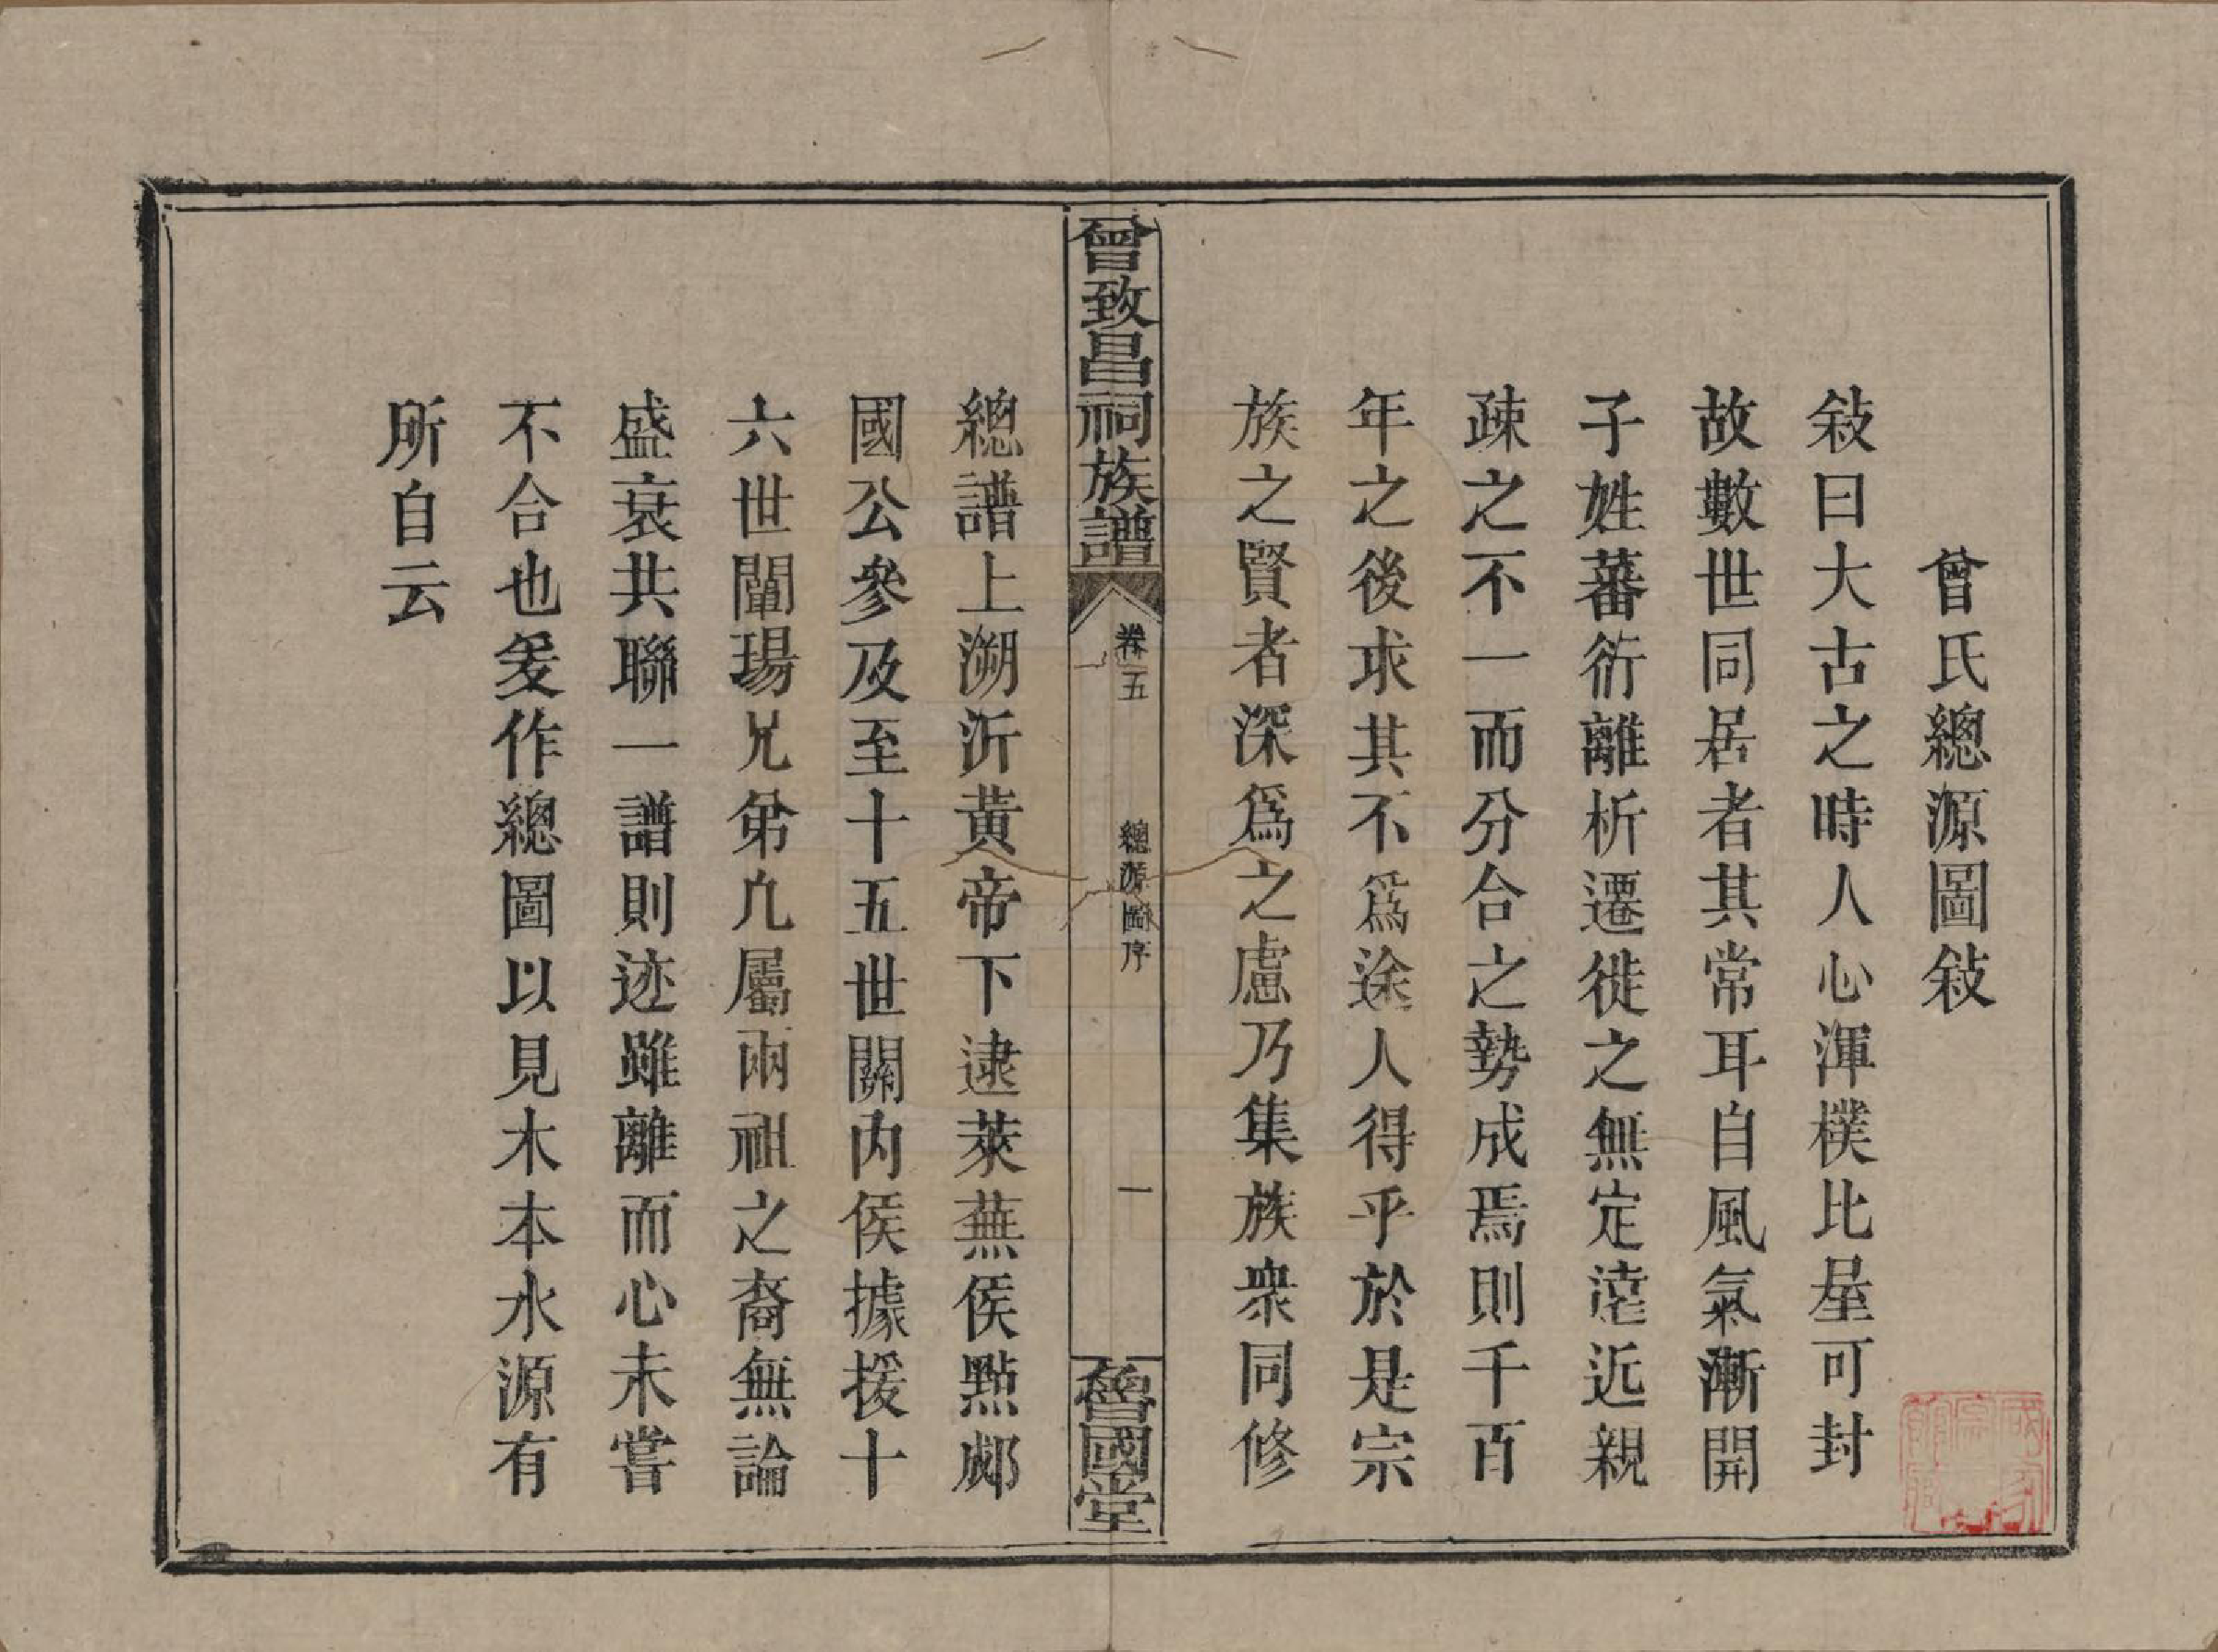 曾氏總源圖敍
敍曰大古之時人心渾樸比屋可封
故數世同居者其常耳自風氣漸開
子姓蕃衍離析遷徙之無定遠近親
疎之不一而分合之勢成焉則千百
年之後求其不爲途人得乎於是宗
族之賢者深爲之慮乃集族衆同修
曾致昌祠族譜
卷五
總源圖序
一
魯國堂
總譜上溯沂黃帝下逮萊蕪侯㸃郕
國公參及至十五世關内侯據援十
六世闡瑒兄弟凢屬兩祖之裔無論
盛衰共聯一譜則迹雖離而心未嘗
不合也爰作總圖以見木本水源有
所自云